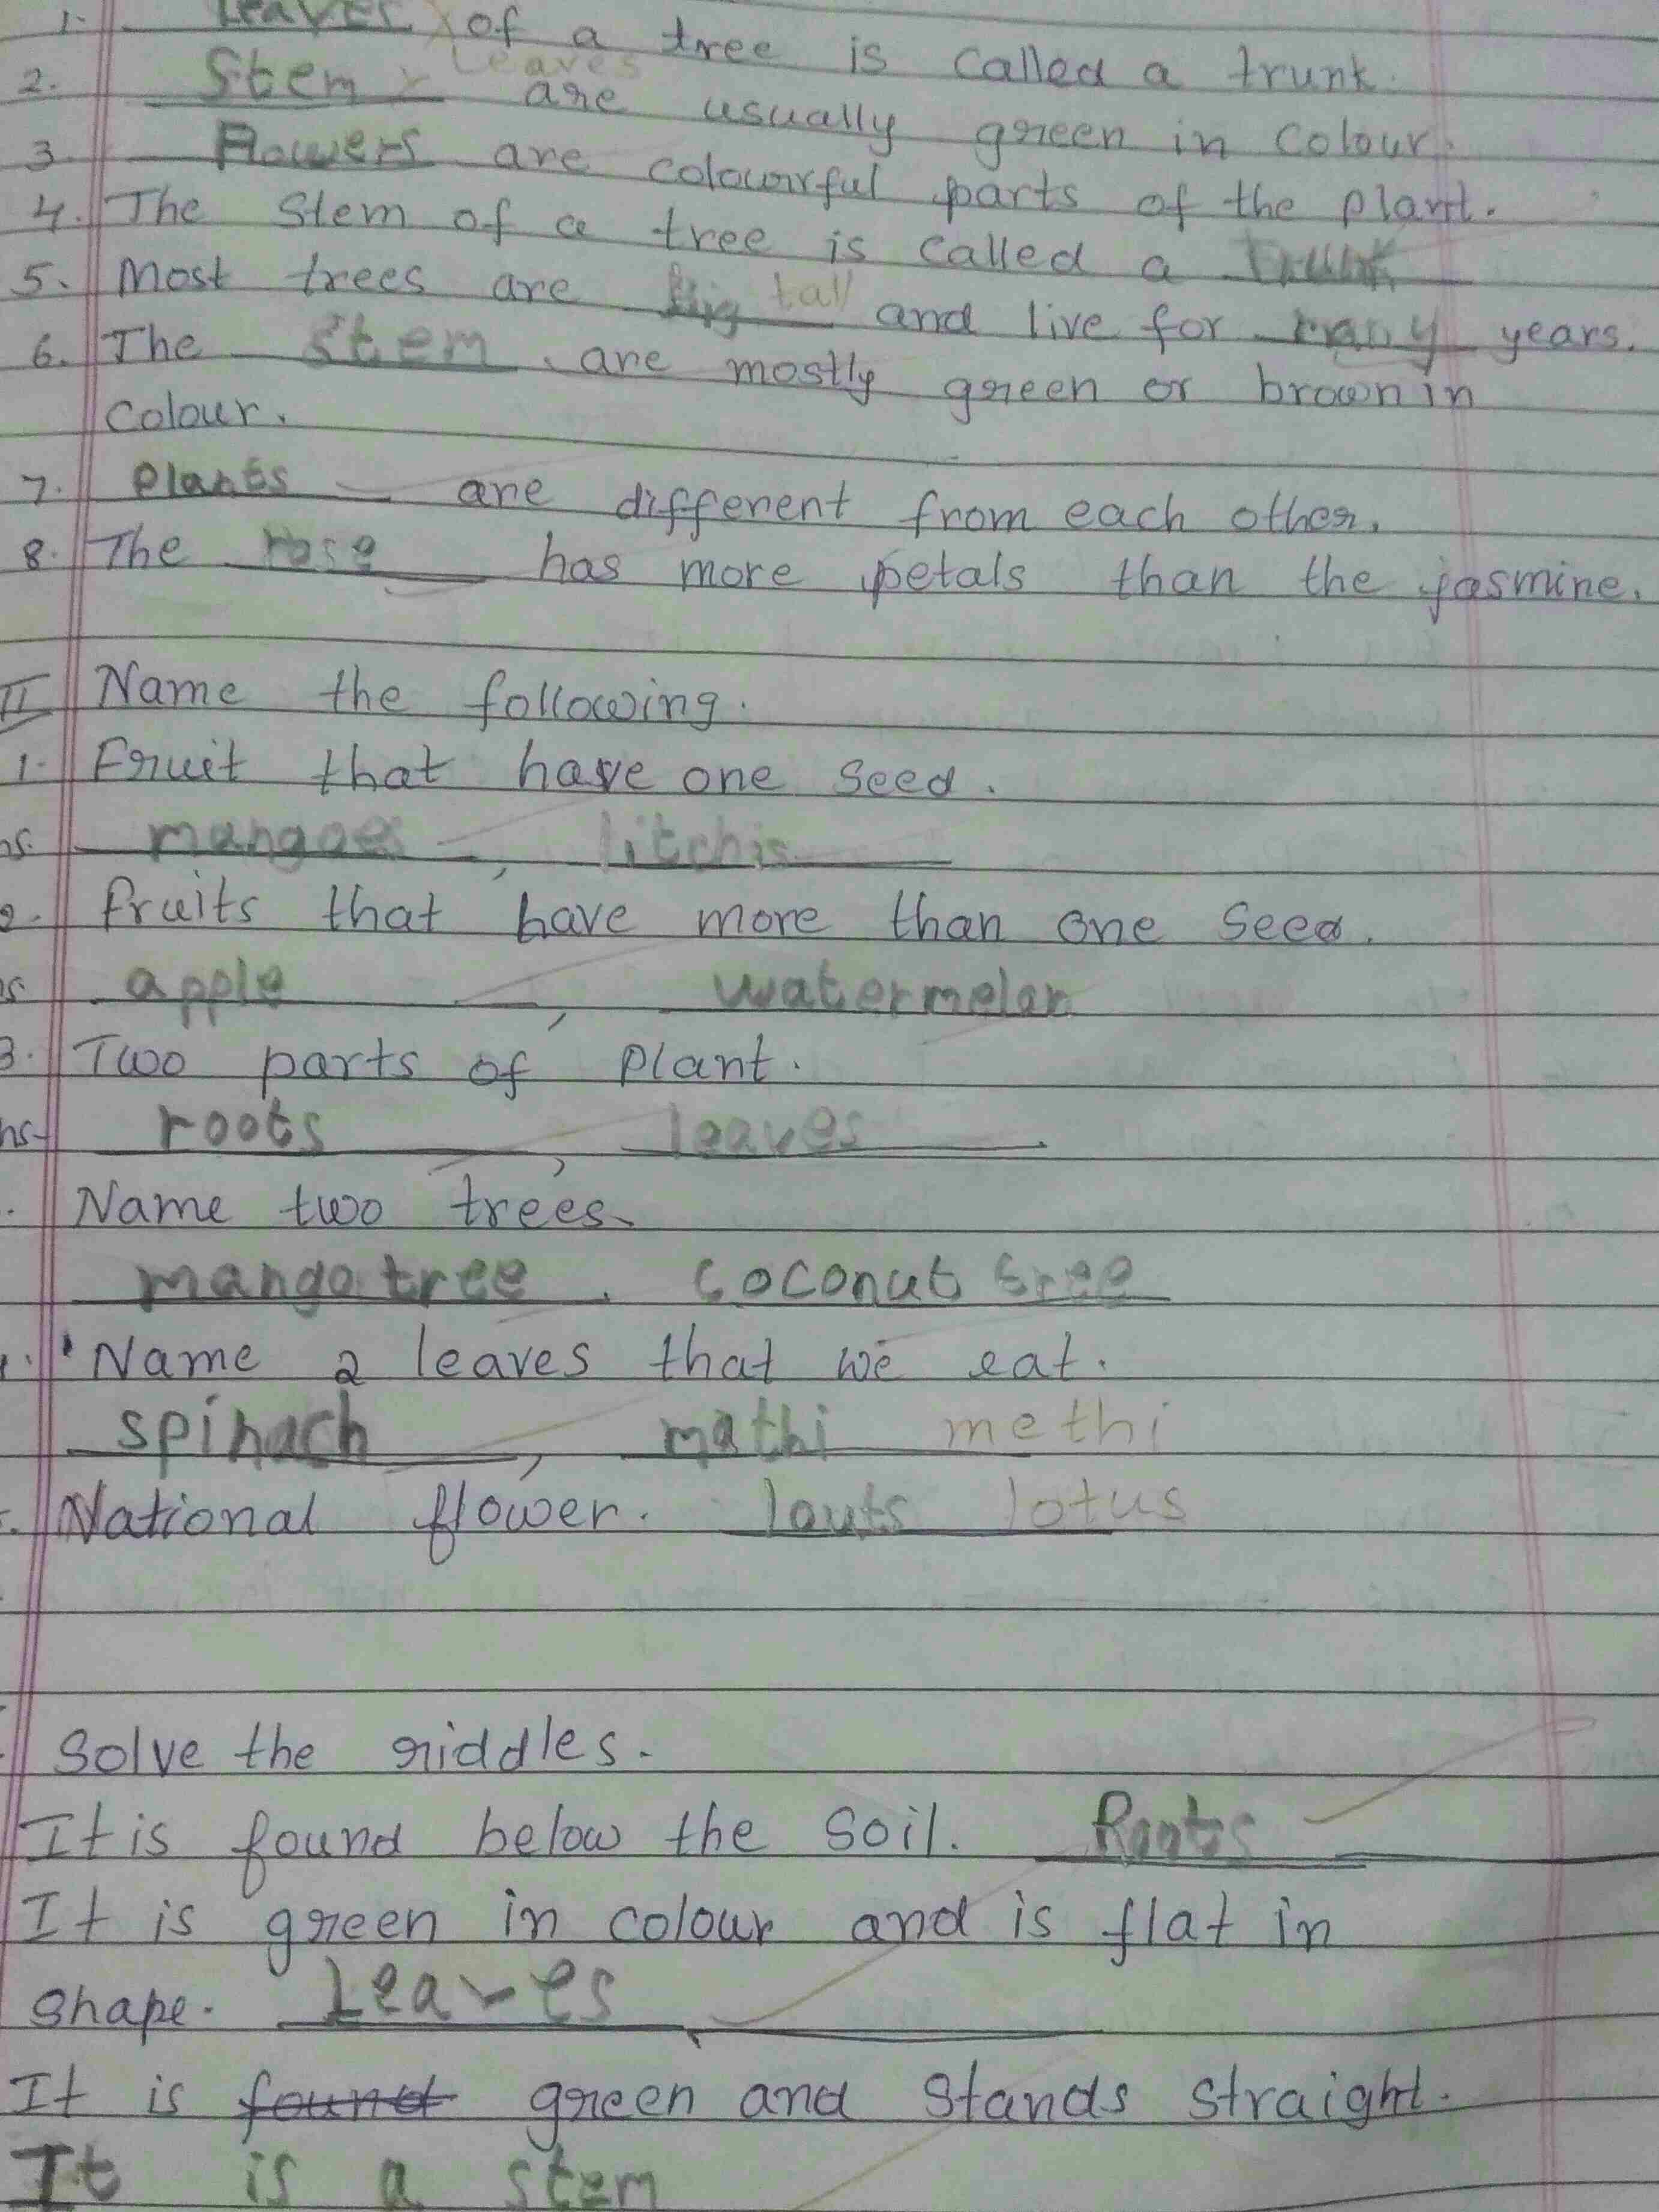 1. Leaves x of a tree is called a trunk.
2. Stem x Leaves are usually green in colour.
3. Flowers are colourful parts of the plant.
4. The stem of a tree is called a trunk
5. Most trees are big tall and live for many years.
6. The stem are mostly green or brown in
colour.
7. Plants are different from each other.
8. The rose has more petals than the jasmine.
II Name the following.
1. Fruit that have one seed.
ns. mangoes, litchis
2. fruits that have more than one seed.
ns apple, watermelon
3. Two parts of plant.
ns- roots, leaves.
. Name two trees.
mango tree. coconut tree
Name 2 leaves that we eat.
spinach, mathi methi
. National flower. lauts lotus
Solve the riddles.
It is found below the soil. Roots
It is green in colour and is flat in
shape. Leaves
It is found green and stands straight.
It is a stem